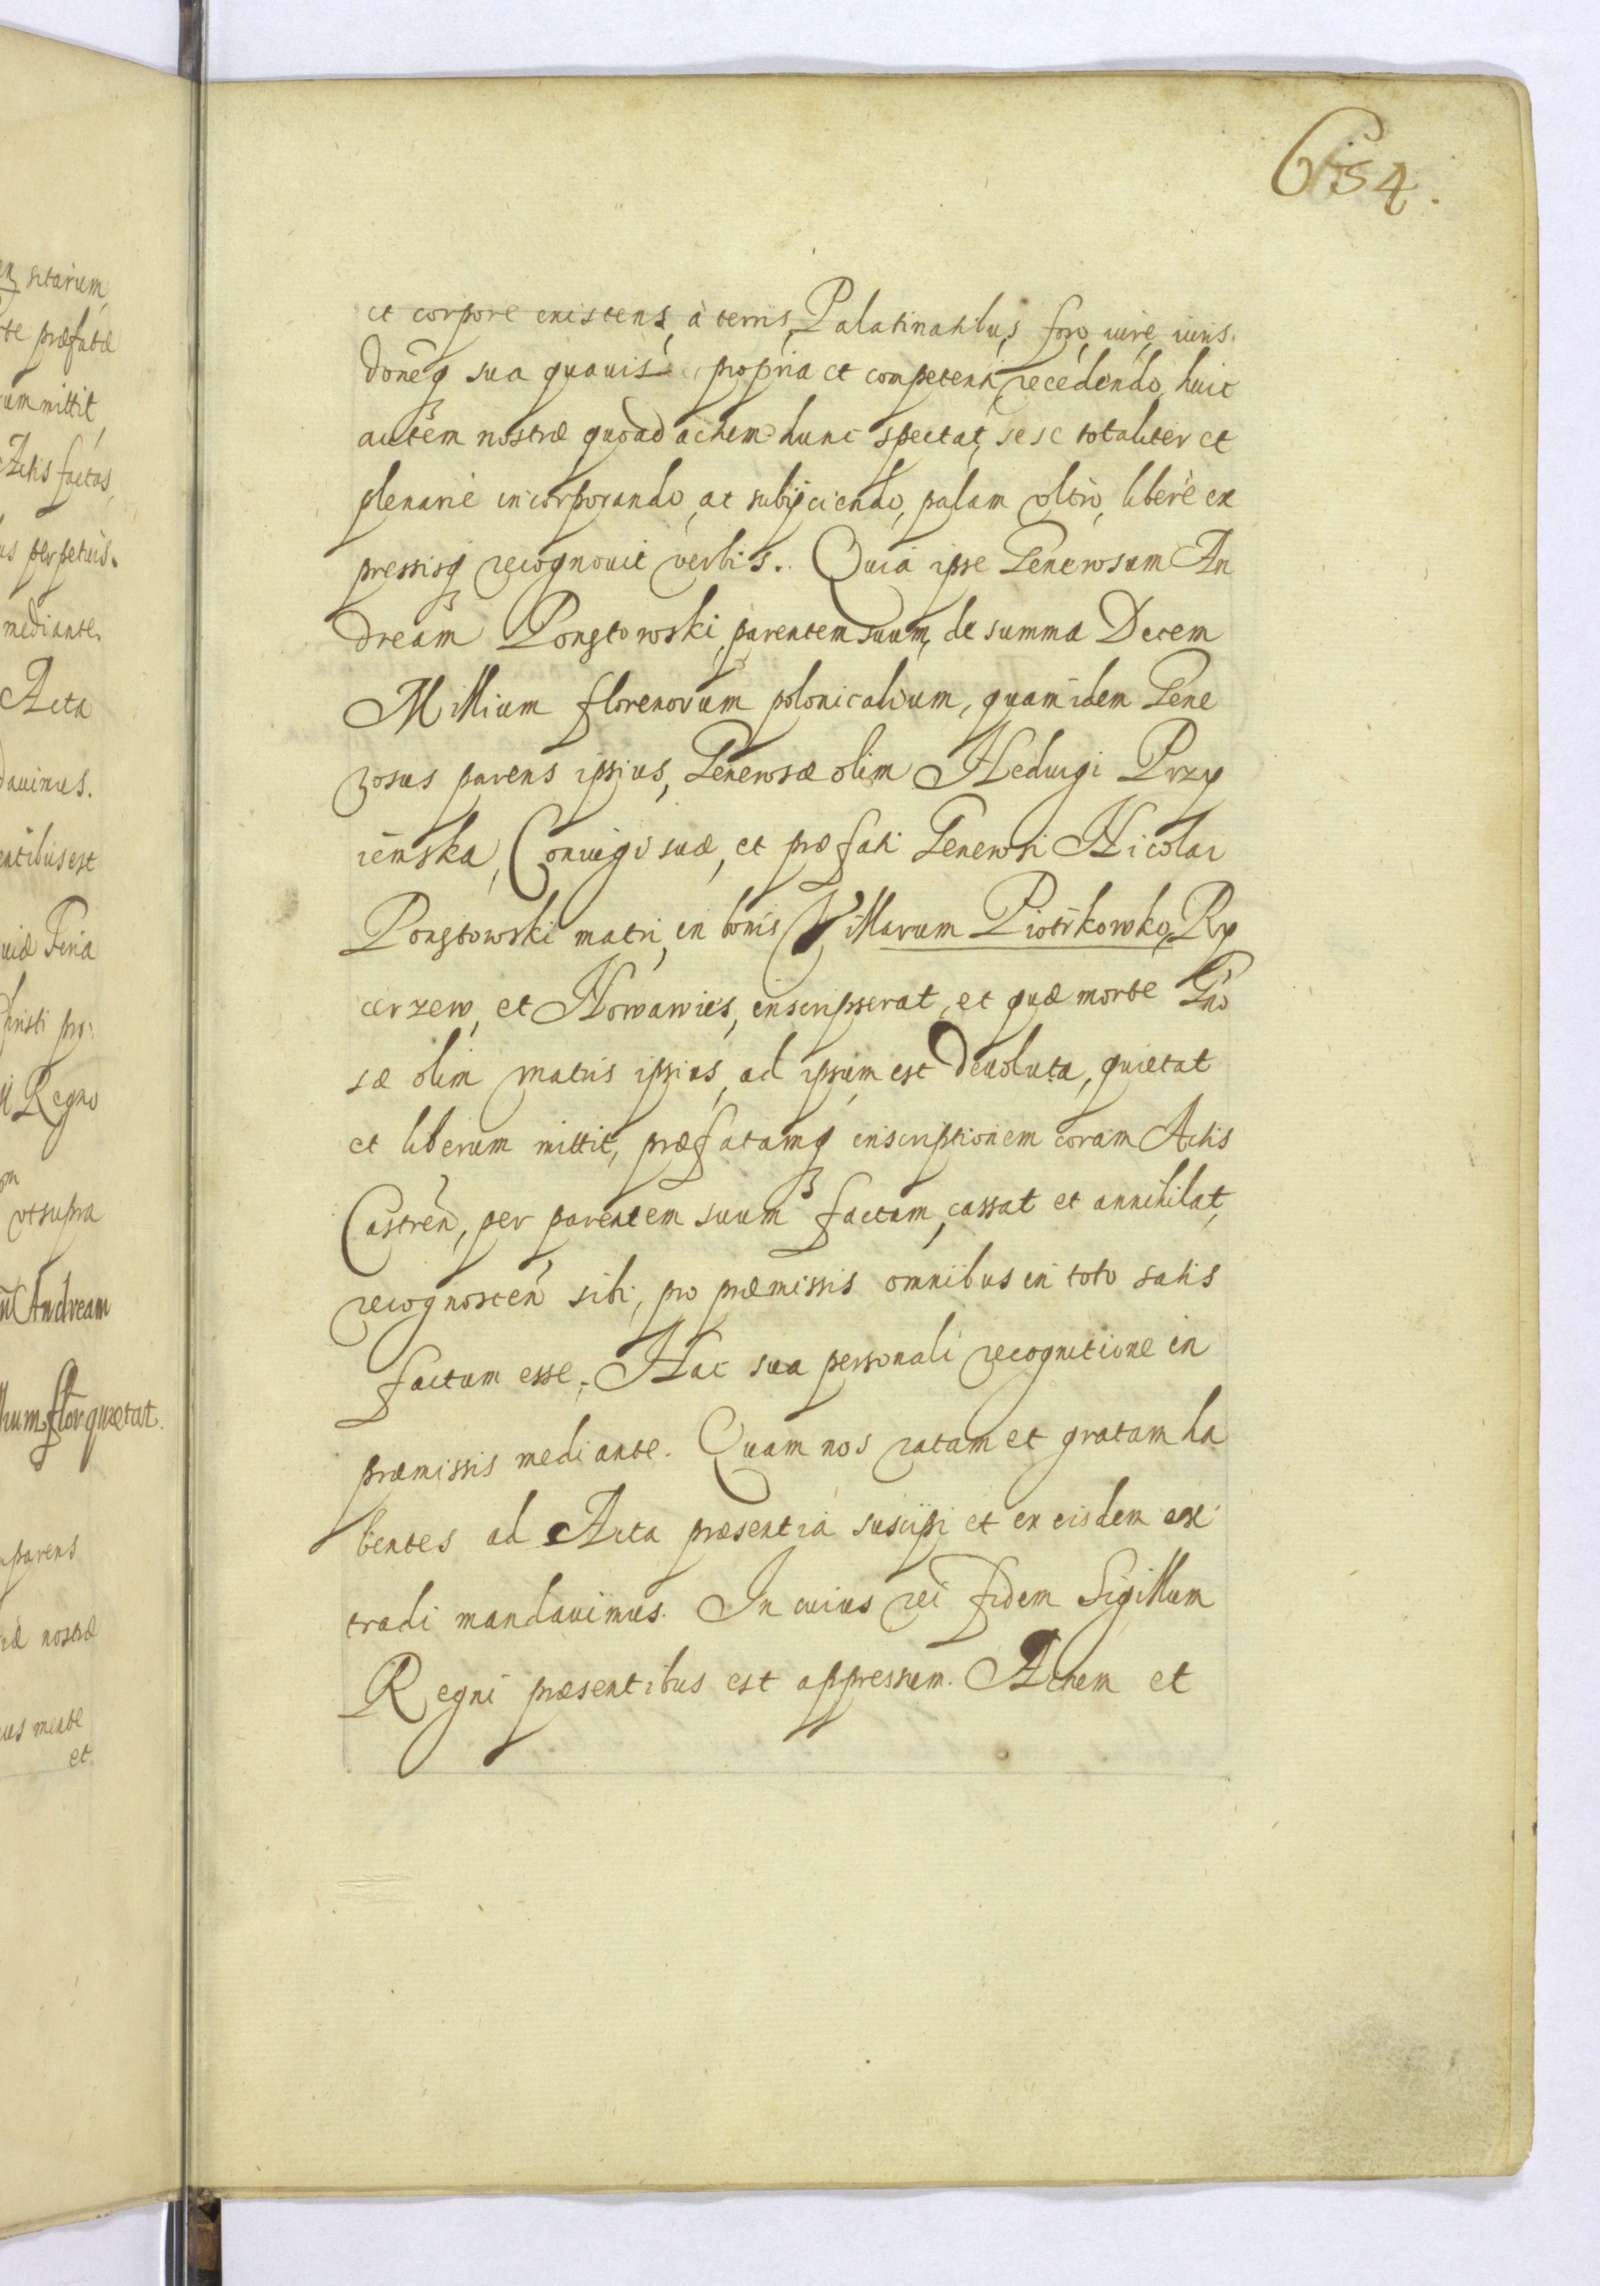 654.
sitarum,
præfatæ
mittit,
Actis factas,
perpetuis.
mediante.
Acta
davimus.
est
Feria
Christi pro:
Regno
utsupra
Andream
flor quietat.
parens
nostræ
mente
et
et corpore existens, à terris, Palatinatibus, foro, iure, iuris.
donēq sua quavis propria et competenti recedendo, huic
autem nostræ quoad actem hunc spectat, sese totaliter et
plenarie incorporando, ac subijciendo, palam ultrò, liberè ex
pressisq recognovit verbis. Quia ipse Generosum An
dream Pongtowski, parentem suum, de summa Decem
Millium florenorum polonicalium, quam idem Gene
rosus parens ipsius, Generosæ olim Hedvigi Przy
iemska, Coniugi suæ, et præfati Generosi Nicolai
Pongtowski matri, in bonis Villarum Piotrkowko, Ry
cerzew, et Nowawies, inscripserat, et quæ morte Gño
sæ olim matris ipsius, ad ipsum est devoluta, quietat
et liberum mittit, præfatamq inscriptionem coram Actis
Castreñ, per parentem suum factam, cassat et annihilat,
recognosceñ sibi, pro præmissis omnibus in toto satis
factum esse. Hac sua personali recognitione in
præmissis mediante. Quam nos ratam et gratam ha
bentes ad Acta præsentia suscipi et ex eisdem ex
tradi mandavimus. In cuius rei fidem Sigillum
Regni præsentibus est appressum. Actem et